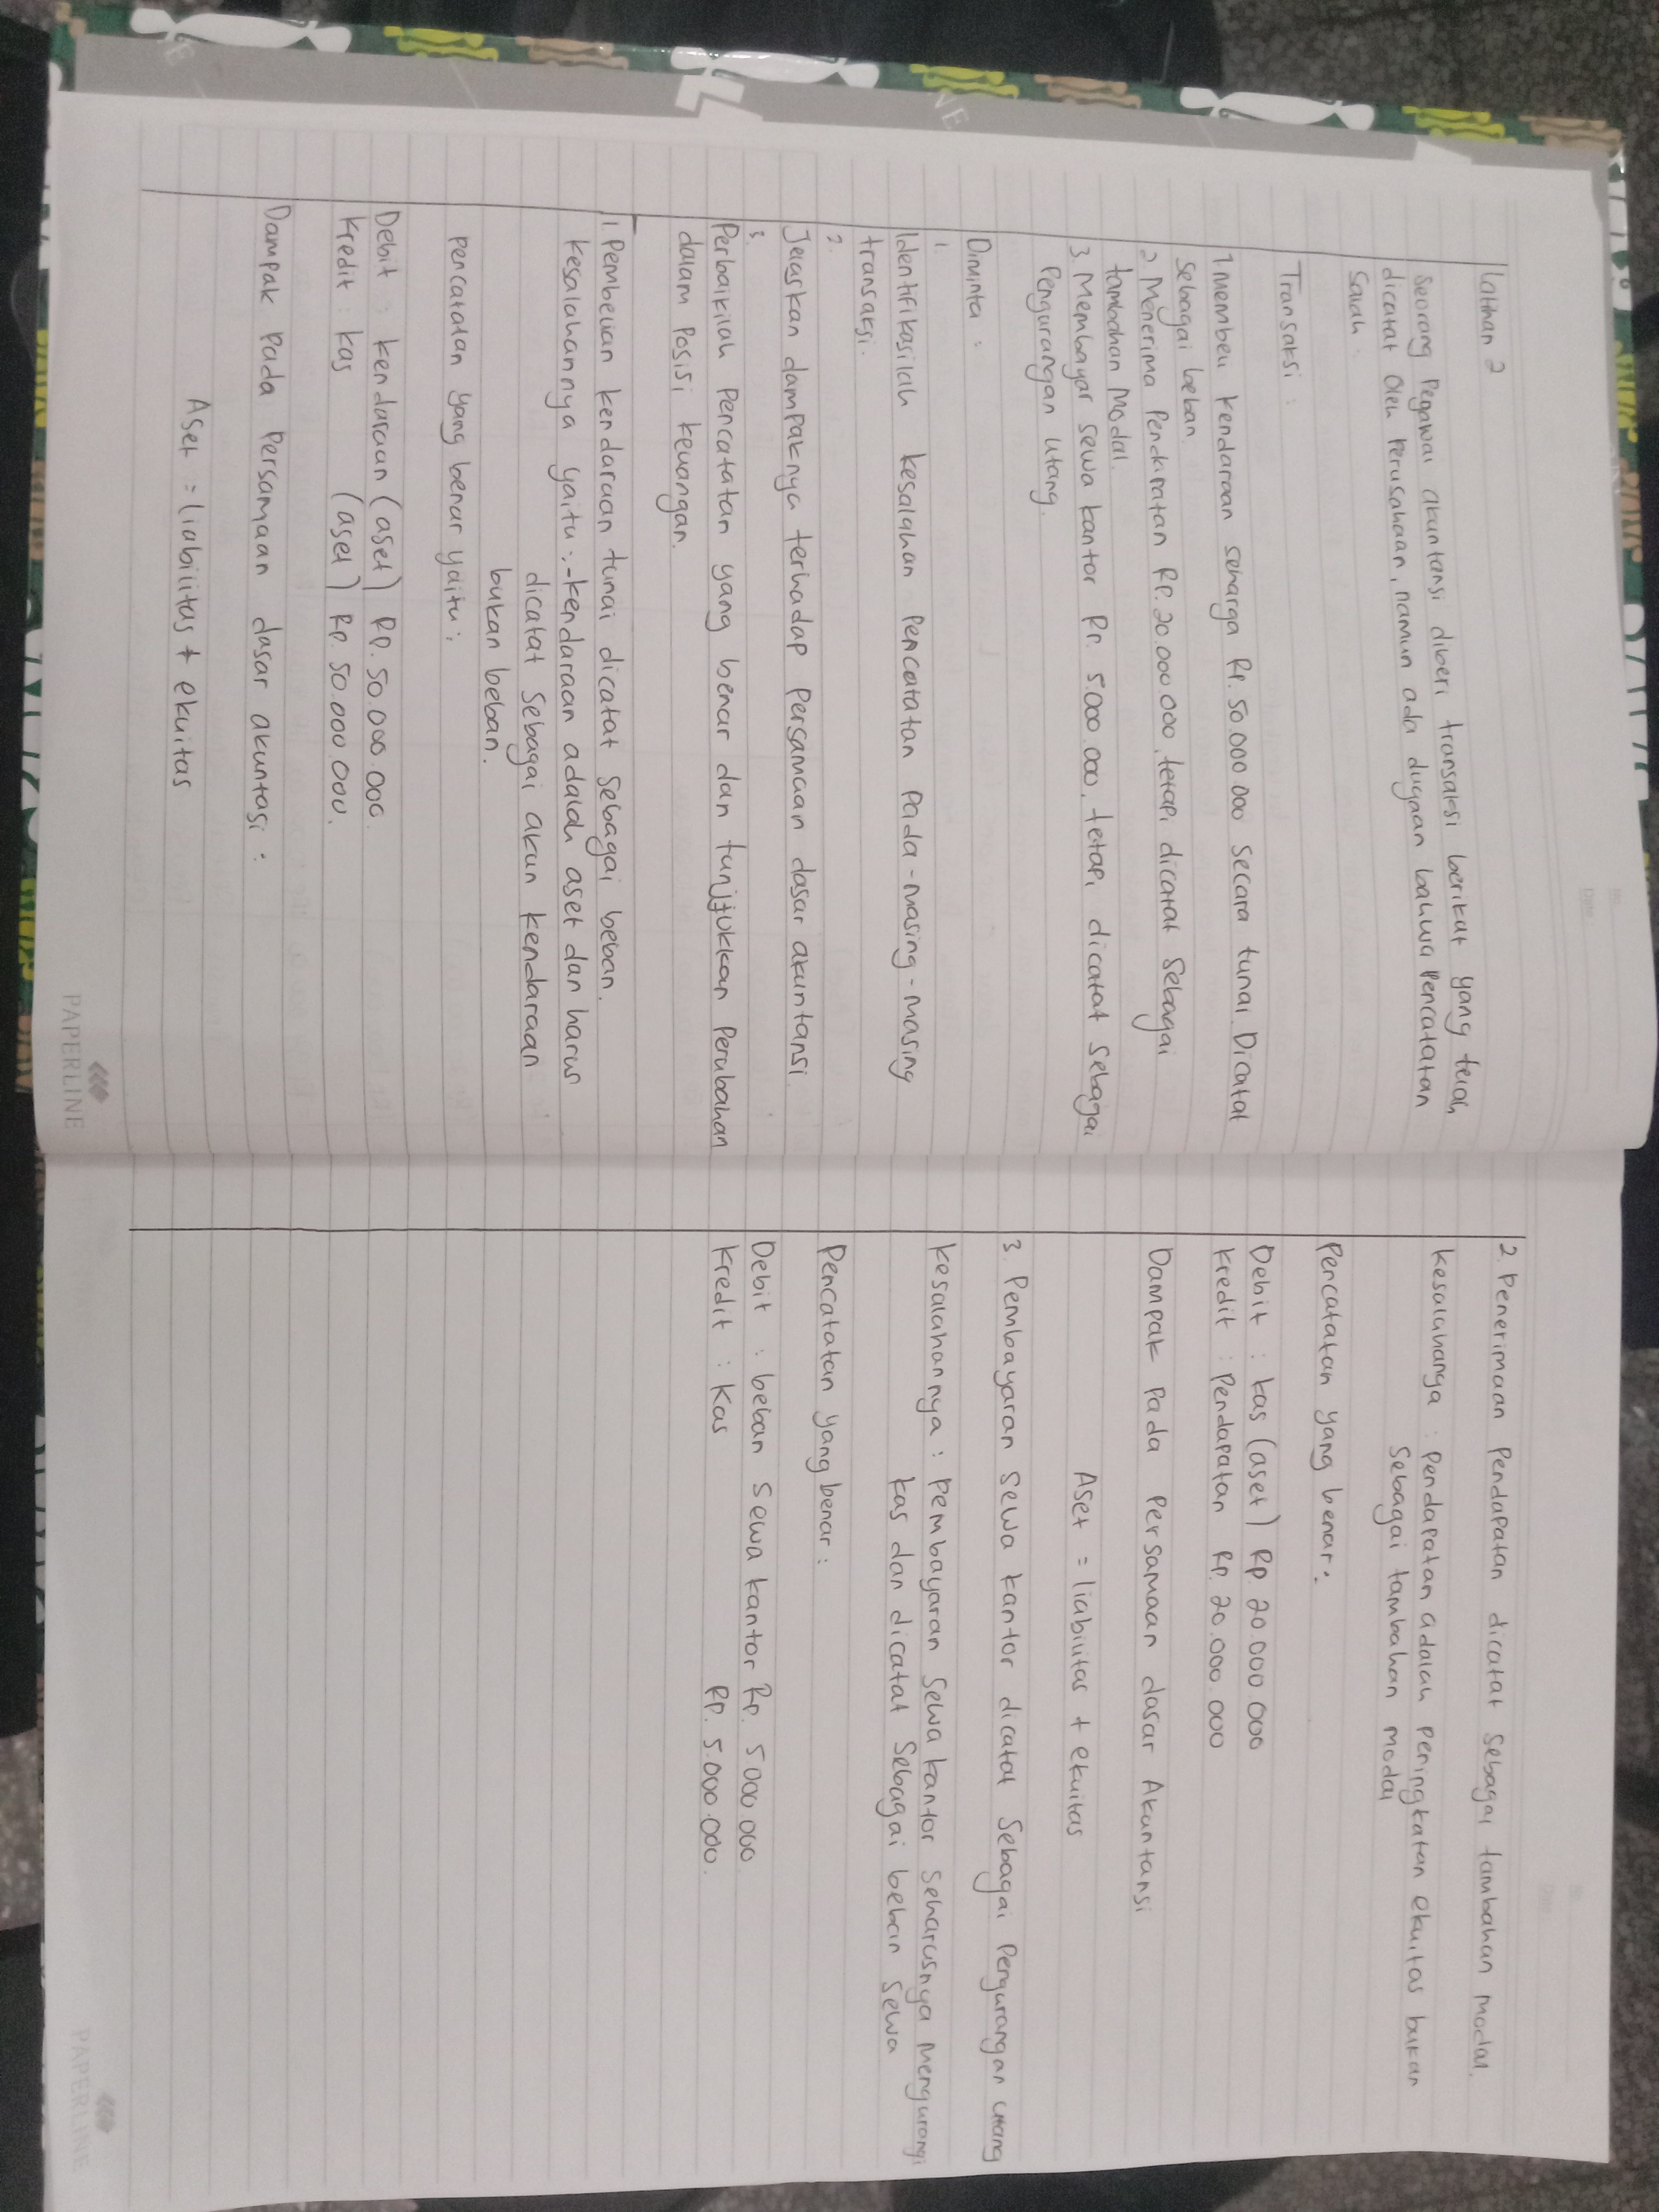 Latihan 2
Seorang Pegawai akuntansi diberi transaksi berikut yang telah
dicatat Oleh Perusahaan, namun ada dugaan bahwa Pencatatan
Salah.
Transaksi :
1 Membeli kendaraan seharga Rp. 50.000 000 secara tunai Dicatat
sebagai beban.
2 Menerima Pendapatan Rp. 20.000 000, tetapi dicatat sebagai
tambahan Modal.
3 Membayar sewa kantor Rp. 5.000.000, tetapi dicatat sebagai
Pengurangan utang.
Diminta :
1.
Identifikasilah kesalahan Pencatatan Pada-Masing-Masing
transaksi.
2.
Jelaskan dampaknya terhadap Persamaan dasar akuntansi
3.
Perbaikilah Pencatatan yang benar dan tunjukkan Perubahan
dalam Posisi keuangan.
1. Pembelian kendaraan tunai dicatat sebagai beban.
kesalahannya yaitu :-kendaraan adalah aset dan harus
dicatat sebagai akun kendaraan
bukan beban.
Pencatatan yang benar yaitu :
Debit : kendaraan (aset) Rp. 50.000.000.
Kredit : kas (aset) Rp. 50.000.000.
Dampak Pada Persamaan dasar akuntasi :
Aset = liabilitas + ekuitas
PAPERLINE
2. Penerimaan Pendapatan dicatat sebagai tambahan modal.
kesalahanya : Pendapatan adalah peningkatan ekuitas bukan
sebagai tambahan modal
Pencatatan yang benar :
Debit : kas (aset) Rp. 20.000 000
kredit : Pendapatan Rp. 20.000.000
Dampak Pada Persamaan dasar Akuntansi
Aset = liabilitas + ekuitas
3. Pembayaran sewa kantor dicatat sebagai Pengurangan utang
kesalahannya : Pembayaran sewa kantor seharusnya mengurangi
kas dan dicatat sebagai beban sewa
Pencatatan yang benar :
Debit : beban sewa kantor Rp. 5.000.000
kredit : Kas Rp. 5.000.000.
PAPERLINE